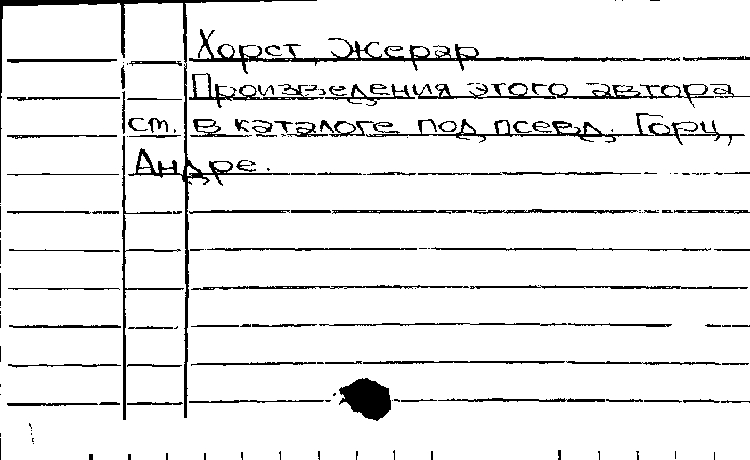 Хорст, Жерар
Произведения этого автора
см. в каталоге под псевд. Горц,
Андре.